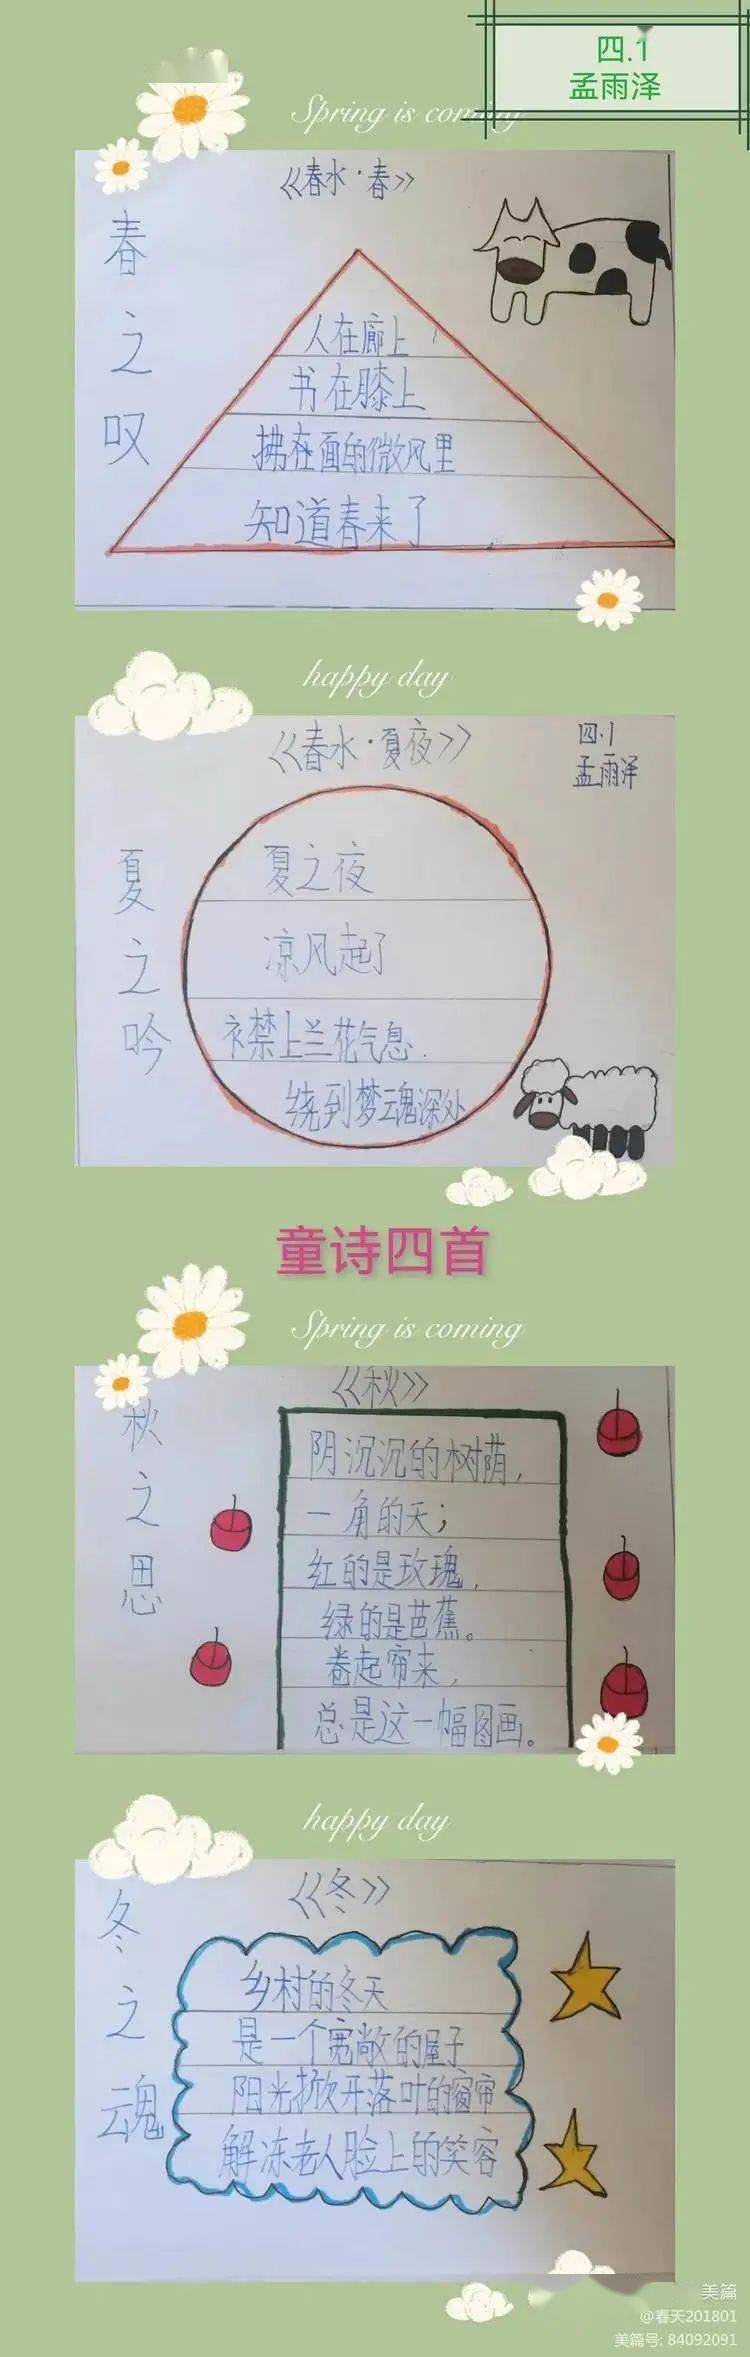 四.1
孟雨泽
Spring is coming
《春水·春》
春之叹
人在廊上
书在膝上
拂在面的微风里
知道春来了
happy day
《春水·夏夜》
四.1
孟雨泽
夏之吟
夏之夜
凉风起了
衤禁上兰花气息.
绕到梦魂深处
童诗四首
Spring is coming
《秋》
秋之思
阴沉沉的树荫，
一角的天；
红的是玫瑰，
绿的是芭蕉。
卷起帘来，
总是这一幅图画。
happy day
《冬》
冬之魂
乡村的冬天
是一个宽敞的屋子
阳光掀开落叶的窗帘
解冻老人脸上的笑容
美篇
@春天201801
美篇号: 84092091